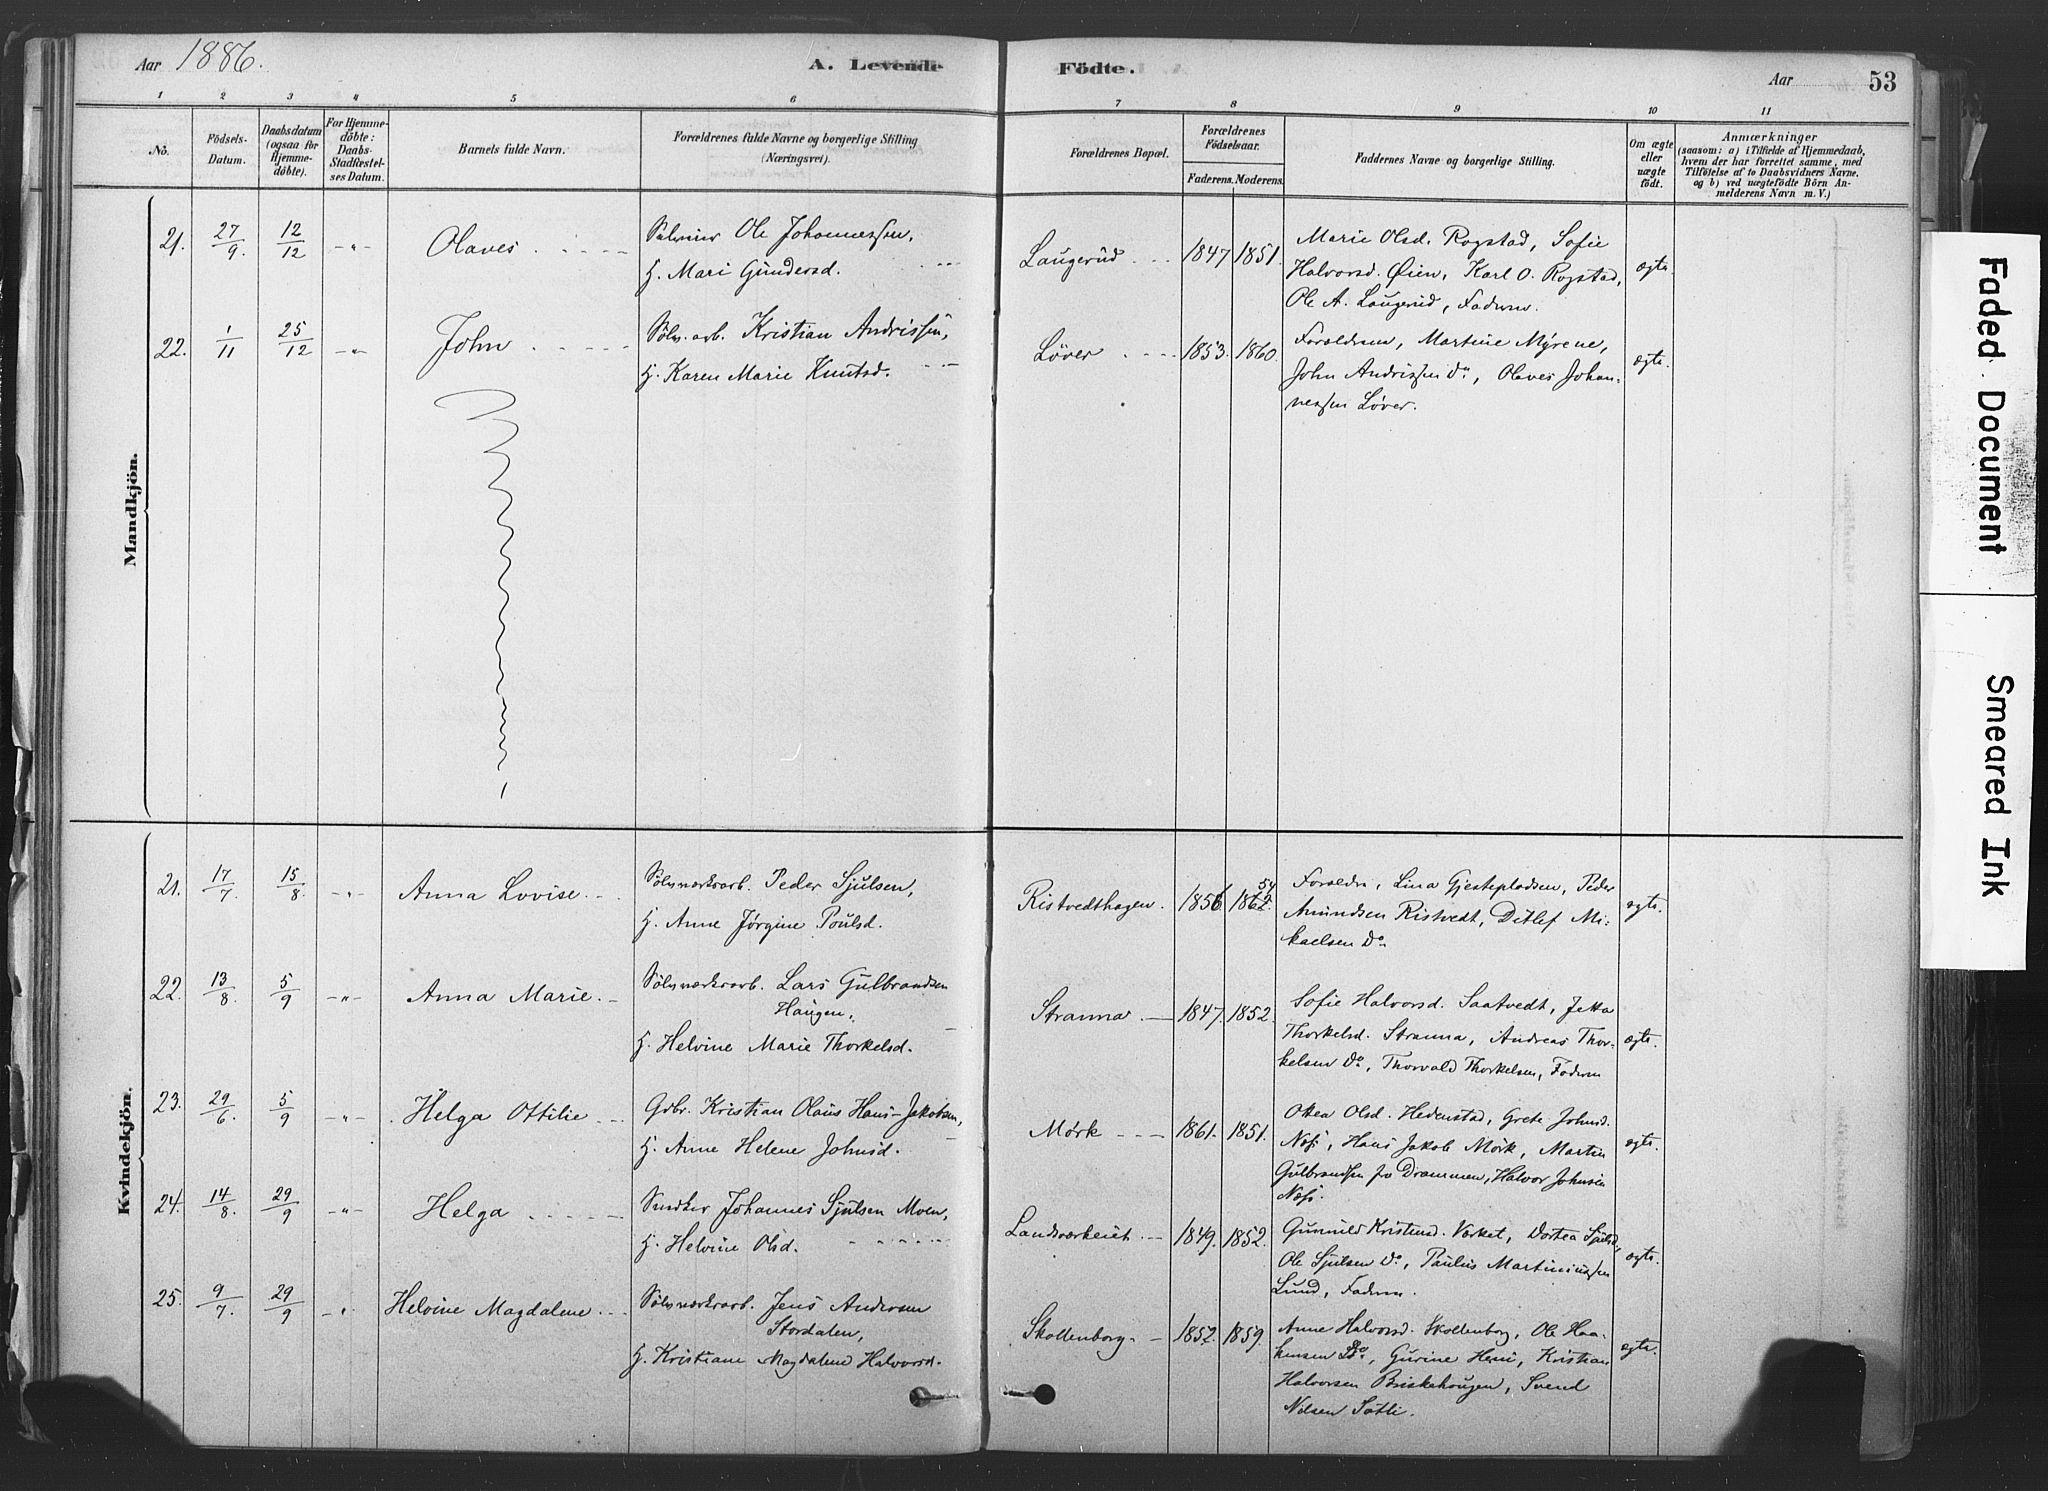 Aar 1886.
A. Levende
Födte.
Aar
53
1 2 3 4 5 6 7 8 9 10 11
No.
Födsels-
Datum.
Daabsdatum
(ogsaa for
Hjemme-
døbte).
For Hjemme-
döbte:
Daabs-
Stadfæstel-
ses Datum.
Barnets fulde Navn.
Forældrenes fulde Navne og borgerlige Stilling
(Næringsvei).
Forældrenes Bopæl.
Forældrenes
Födselsaar.
Faderens. Moderens.
Faddernes Navne og borgerlige Stilling.
Om ægte
eller
uægte
födt.
Anmærkninger
(saasom: a) i Tilfælde af Hjemmedaab,
hvem der har forrettet samme, med
Tilföielse af to Daabsvidners Navne,
og b) ved uægtefödte Börn An-
melderens Navn m. V.)
Mandkjön.
21. 27/9 12/12 -"- Olaves
Ole Johannessen,
H. Mari Gundersd.
Laugerud 1847 1851.
Marie Olsd. Rogstad, Sofie
Halvorsd. Øien, Karl O. Rogstad,
Ole A. Laugerud, Faderen.
ægte
22. 1/11 25/12 -"- John
Sølv. arb. Kristian Andrissen,
H. Karen Marie Knutsd.
Løver 1853. 1860.
Forældrene, Martine Myrene,
John Andrissen Do, Olaves Johan-
nessen Løver.
ægte.
Kvindekjön.
21. 17/7 15/8 -"- Anna Lovise
Sølvværksarb. Peder Sjulsen,
H. Anne Jørgine Poulsd.
Ristvedthagen. 1856 1862. 54
Forældre, Lina Gjestepladsen, Peder
Amundsen Ristvedt, Ditlef Mi-
kaelsen Do
ægte.
22. 13/8 5/9 -"- Anna Marie
Sølvværksarb. Lars Gulbrandsen
Haugen,
H. Helvine Marie Thorkelsd.
Stranna 1847. 1852.
Sofie Halvorsd. Saatvedt, Jetta
Thorkelsd. Stranna, Andreas Thor-
kelsen Do, Thorvald Thorkelsen, Faderen
ægte.
23. 29/6 5/9 -"- Helga Ottilie
Gdbr. Kristian Olaus Hans-Jakobsen,
H. Anne Helene Johnsd.
Mørk 1861. 1851.
Olea Olsd. Hedenstad, Grete Johnsd.
Næss, Hans Jakob Mørk, Martin
Gulbrandsen fra Drammen, Halvor Johnsen
Næss.
ægte.
24. 14/8 29/9 -"- Helga
Snedker Johannes Sjulsen Moen,
H. Helvine Olsd.
Landsværkeiet 1849. 1852.
Gunnild Kristensd. Værket, Dortea Sjulsd,
Ole Sjulsen Do, Paulus Martiniussen
Lund, Faderen.
ægte.
25. 9/7 29/9 -"- Helvine Magdalene
Sølvværksarb. Jens Andersen
Stordalen,
H. Kristiane Magdalene Halvorsd.
Skollenborg 1852. 1859.
Anne Halvorsd. Skollenborg, Ole Haa-
kensen Do, Gurine Hem, Kristian
Halvorsen Briskehaugen, Svend
Nilsen Sætli.
ægte.
Faded Document
Smeared Ink